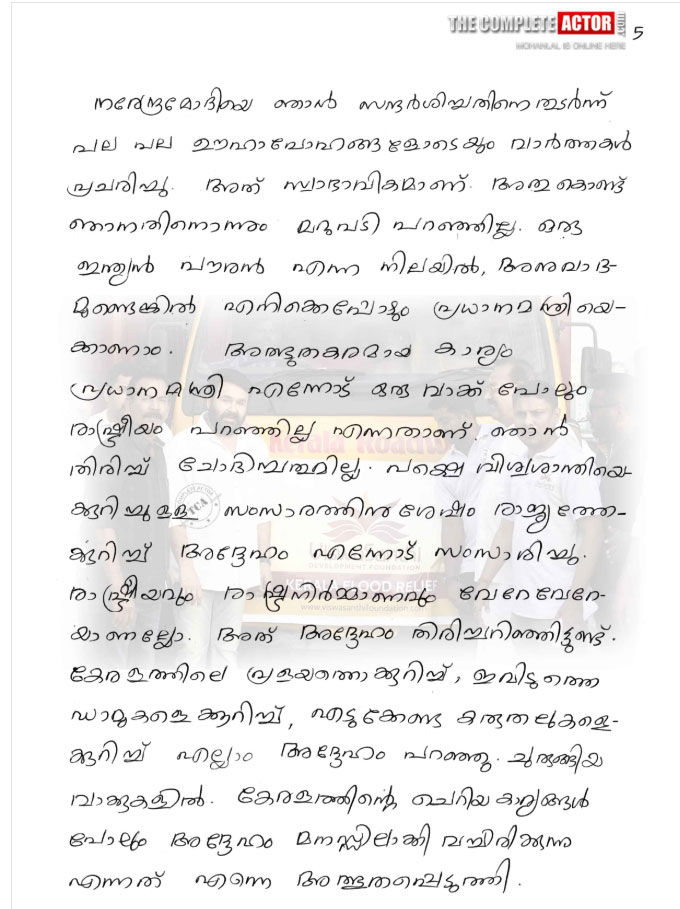 THE COMPLETE ACTOR
MOHANLAL IS ONLINE HERE
5
നരേന്ദ്രമോദിയെ ഞാൻ സന്ദർശിച്ചതിനെതുടർന്ന്
പല പല ഊഹാപോഹങ്ങളോടെയും വാർത്തകൾ
പ്രചരിച്ചു. അത് സ്വാഭാവികമാണ്. അതുകൊണ്ട്
ഞാനതിനൊന്നും മറുപടി പറഞ്ഞില്ല. ഒരു
ഇന്ത്യൻ പൗരൻ എന്ന നിലയിൽ, അനുവാദ-
മുണ്ടെങ്കിൽ എനിക്കെപ്പോഴും പ്രധാനമന്ത്രിയെ-
ക്കാണാം. അത്ഭുതകരമായ കാര്യം
പ്രധാനമന്ത്രി എന്നോട് ഒരു വാക്ക് പോലും
രാഷ്ട്രീയം പറഞ്ഞില്ല എന്നതാണ്. ഞാൻ
തിരിച്ച് ചോദിച്ചതുമില്ല. പക്ഷെ വിശ്വശാന്തിയെ-
ക്കുറിച്ചുള്ള സംസാരത്തിനുശേഷം രാജ്യത്തെ-
ക്കുറിച്ച് അദ്ദേഹം എന്നോട് സംസാരിച്ചു.
രാഷ്ട്രീയവും രാഷ്ട്രനിർമ്മാണവും വേറേവേറേ-
യാണല്ലോ. അത് അദ്ദേഹം തിരിച്ചറിഞ്ഞിട്ടുണ്ട്.
കേരളത്തിലെ പ്രളയത്തെക്കുറിച്ച്, ഇവിടുത്തെ
ഡാമുകളെക്കുറിച്ച്, എടുക്കേണ്ട കരുതലുകളെ-
ക്കുറിച്ച് എല്ലാം അദ്ദേഹം പറഞ്ഞു. ചുരുങ്ങിയ
വാക്കുകളിൽ. കേരളത്തിന്റെ ചെറിയ കാര്യങ്ങൾ
പോലും അദ്ദേഹം മനസ്സിലാക്കി വച്ചിരിക്കുന്നു
എന്നത് എന്നെ അത്ഭുതപ്പെടുത്തി.
Kerala Road
DEVELOPMENT FOUNDATION
KERALA FLOOD RELIEF
www.viswasanthifoundation.com
TCA